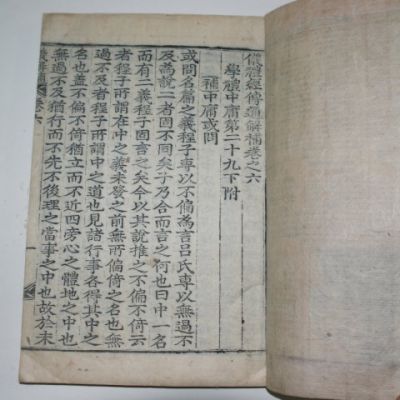 儀禮經傳通解補卷之六
學禮中庸第二十九下附
補中庸或問
或問名篇之義程子專以不偏爲言呂氏專以無過不
及爲說二者固不同矣子乃合而言之何也曰中一名
而有二義程子固言之矣今以其說推之不偏不倚云
者程子所謂在中之義未發之前無所偏倚之名也無
過不及者程子所謂中之道也見諸行事各得其中之
名也盖不偏不倚猶立而不近四旁心之體地之中也
無過不及猶行而不先不後理之當事之中也故於未
卷六